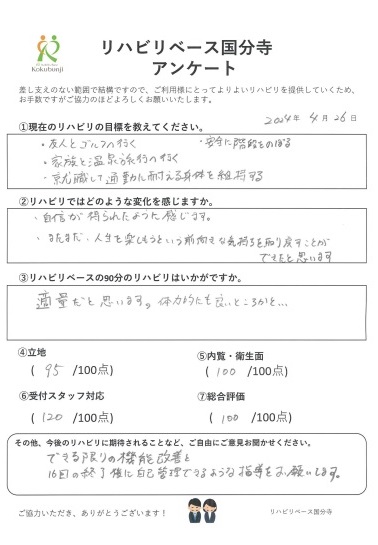 Kokubunji
リハビリベース国分寺
アンケート
差し支えのない範囲で結構ですので、ご利用様にとってよりよいリハビリを提供していくため、
お手数ですがご協力のほどよろしくお願いいたします。
2024年 4月 26日
①現在のリハビリの目標を教えてください。
・友人とゴルフへ行く ・安全に階段をのぼる
・家族と温泉旅行へ行く
・京就職して通勤に耐える身体を維持する
②リハビリではどのような変化を感じますか。
・自信が得られたような感じです。
・まだまだ、人生を楽しもうという前向きな気持を取り戻すことが
できたと思います
③リハビリベースの90分のリハビリはいかがですか。
適量だと思います。体力的にも良いところかと…
④立地
( 95 /100点)
⑤内覧・衛生面
( 100 /100点)
⑥受付スタッフ対応
( 120 /100点)
⑦総合評価
( 100 /100点)
その他、今後のリハビリに期待されることなど、ご自由にご意見お聞かせください。
できる限りの機能改善と
16回の終了後に自己管理できるような指導をお願いします。
ご協力いただき、ありがとうございます！
リハビリベース国分寺